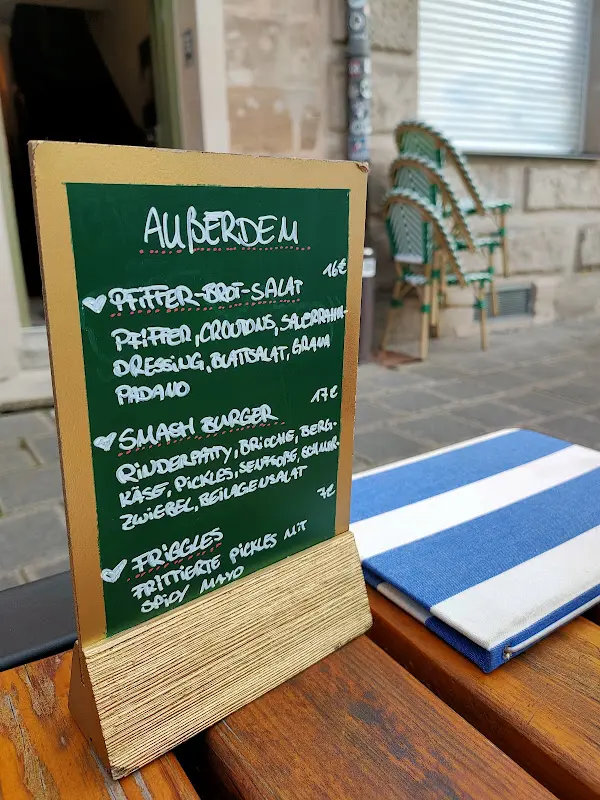 AUßERDEM
16€
PFIFFER-BROT-SALAT
PFIFFER, CROUTONS, SAUERRAHM-
DRESSING, BLATTSALAT, GRANA
PADANO
17€
SMASH BURGER
RINDERPATTY, BRIOCHE, BERG-
KÄSE, PICKLES, SENFSOßE, SCHMOR-
ZWIEBEL, BEILAGENSALAT
7€
FRIGGLES
FRITTIERTE PICKLES MIT
SPICY MAYO